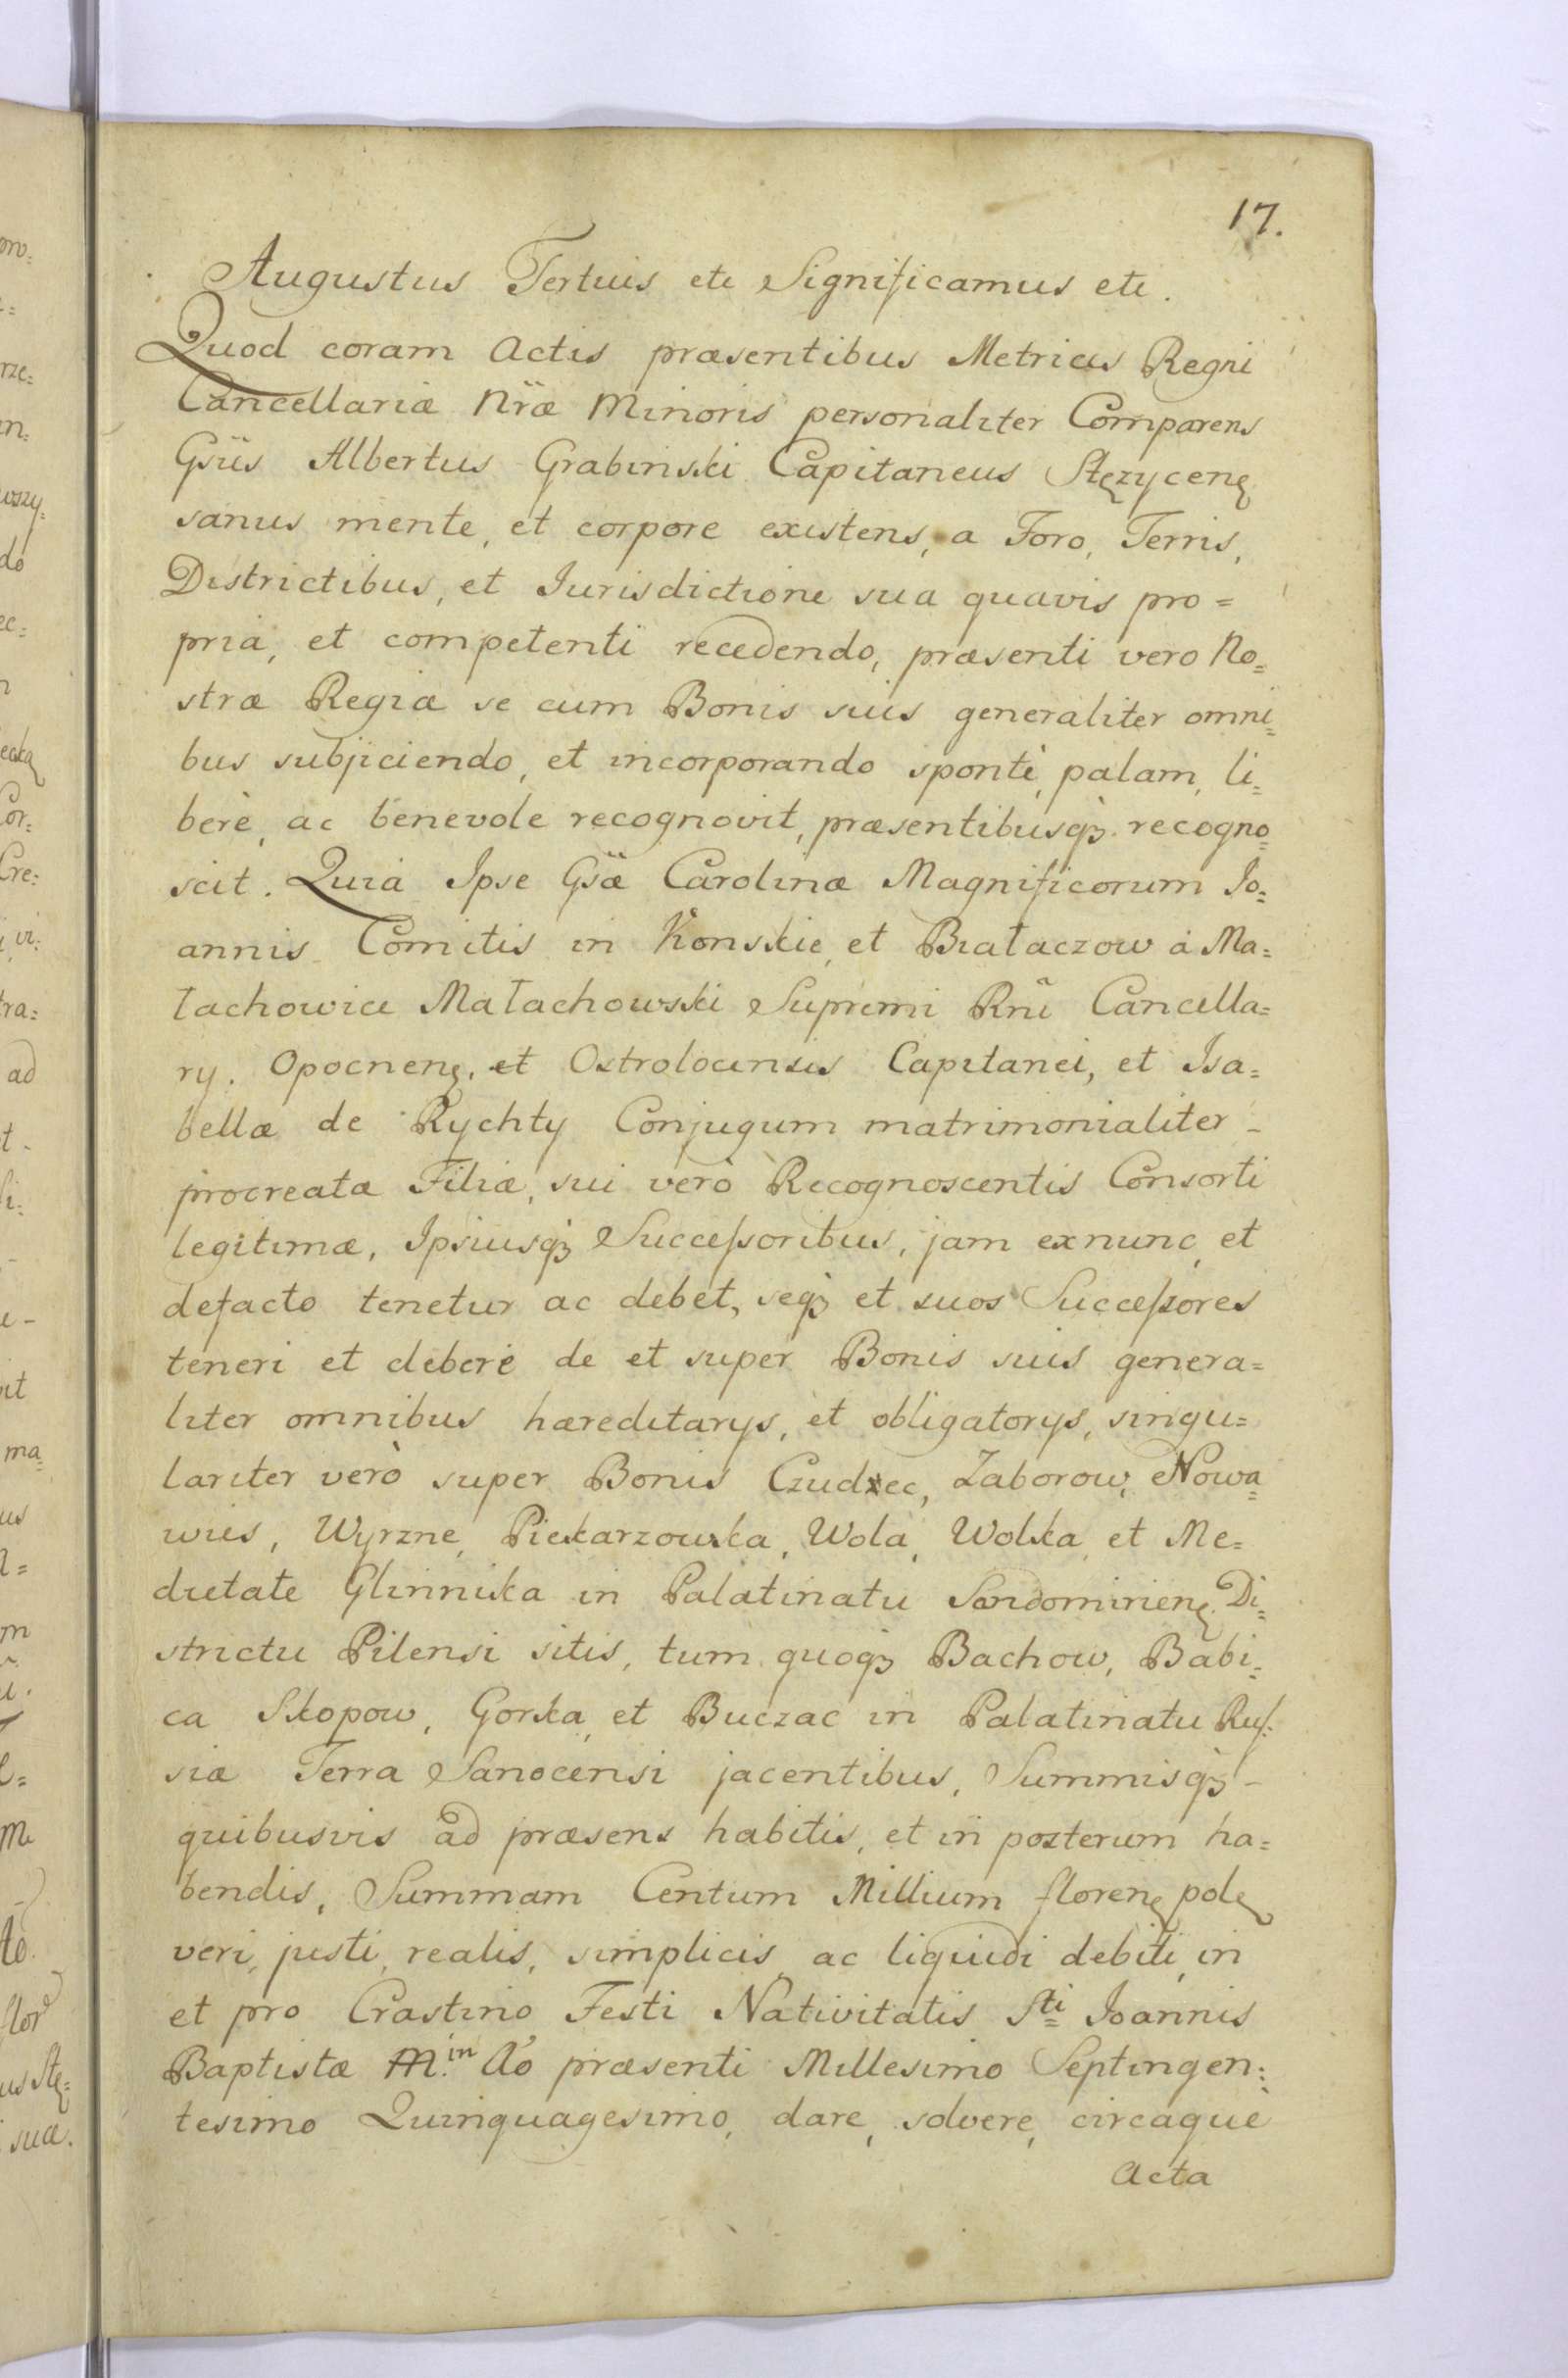 17.
Augustus Tertius etc Significamus etc.
Quod coram Actis præsentibus Metrices Regni
Cancellariæ Nr̃æ Minoris personaliter Comparens
Gs̃us Albertus Grabinski Capitaneus Stęzyceng
sanus mente, et corpore existens, a Foro, Terris,
Districtibus, et Jurisdictione sua quavis pro=
pria, et competenti recedendo, præsenti vero No=
stræ Regiæ se cum Bonis suis generaliter omni=
bus subjiciendo, et incorporando spontè, palam, li=
berè, ac benevole recognovit, præsentibusqȝ recogno=
scit. Quia Ipse Gs̃æ Carolinæ Magnificorum Jo=
annis Comitis in Konskie, et Białaczow à Ma=
łachowice Małachowski Supremi Rñi Cancella=
ry. Opocneng. et Ostrolocensis Capitanei, et Isa=
bellæ de Rychty Conjugum matrimonialiter -
procreatæ Filiæ, sui verò Recognoscentis Consorti
legitimæ, Ipsiusqȝ Successoribus, jam exnunc, et
defacto tenetur ac debet, seqȝ et suos Successores
teneri et debere de et super Bonis suis genera=
liter omnibus hæreditarys, et obligatorys, singu=
lariter verò super Bonis Czudzec, Zaborow, Nowa=
wies, Wyrzne, Piekarzowska, Wola, Wolka, et Me=
dietate Glinnika in Palatinatu Sandomirieng. Di=
strictu Pilensi sitis, tum quoqȝ Bachow, Babi=
ca Skopow, Gorka, et Buczac in Palatinatu Rus=
siæ Terra Sanocensi jacentibus, Summisqȝ -
quibusvis ad præsens habitis, et in posterum ha=
bendis, Summam Centum Millium floreng polg
veri, justi, realis, simplicis, ac liquidi debiti, in
et pro Crastino Festi Nativitatis Sti Joannis
Baptistæ M. in Ao præsenti Millesimo Septingen=
tesimo Quinquagesimo, dare, solvere, circaque
Acta